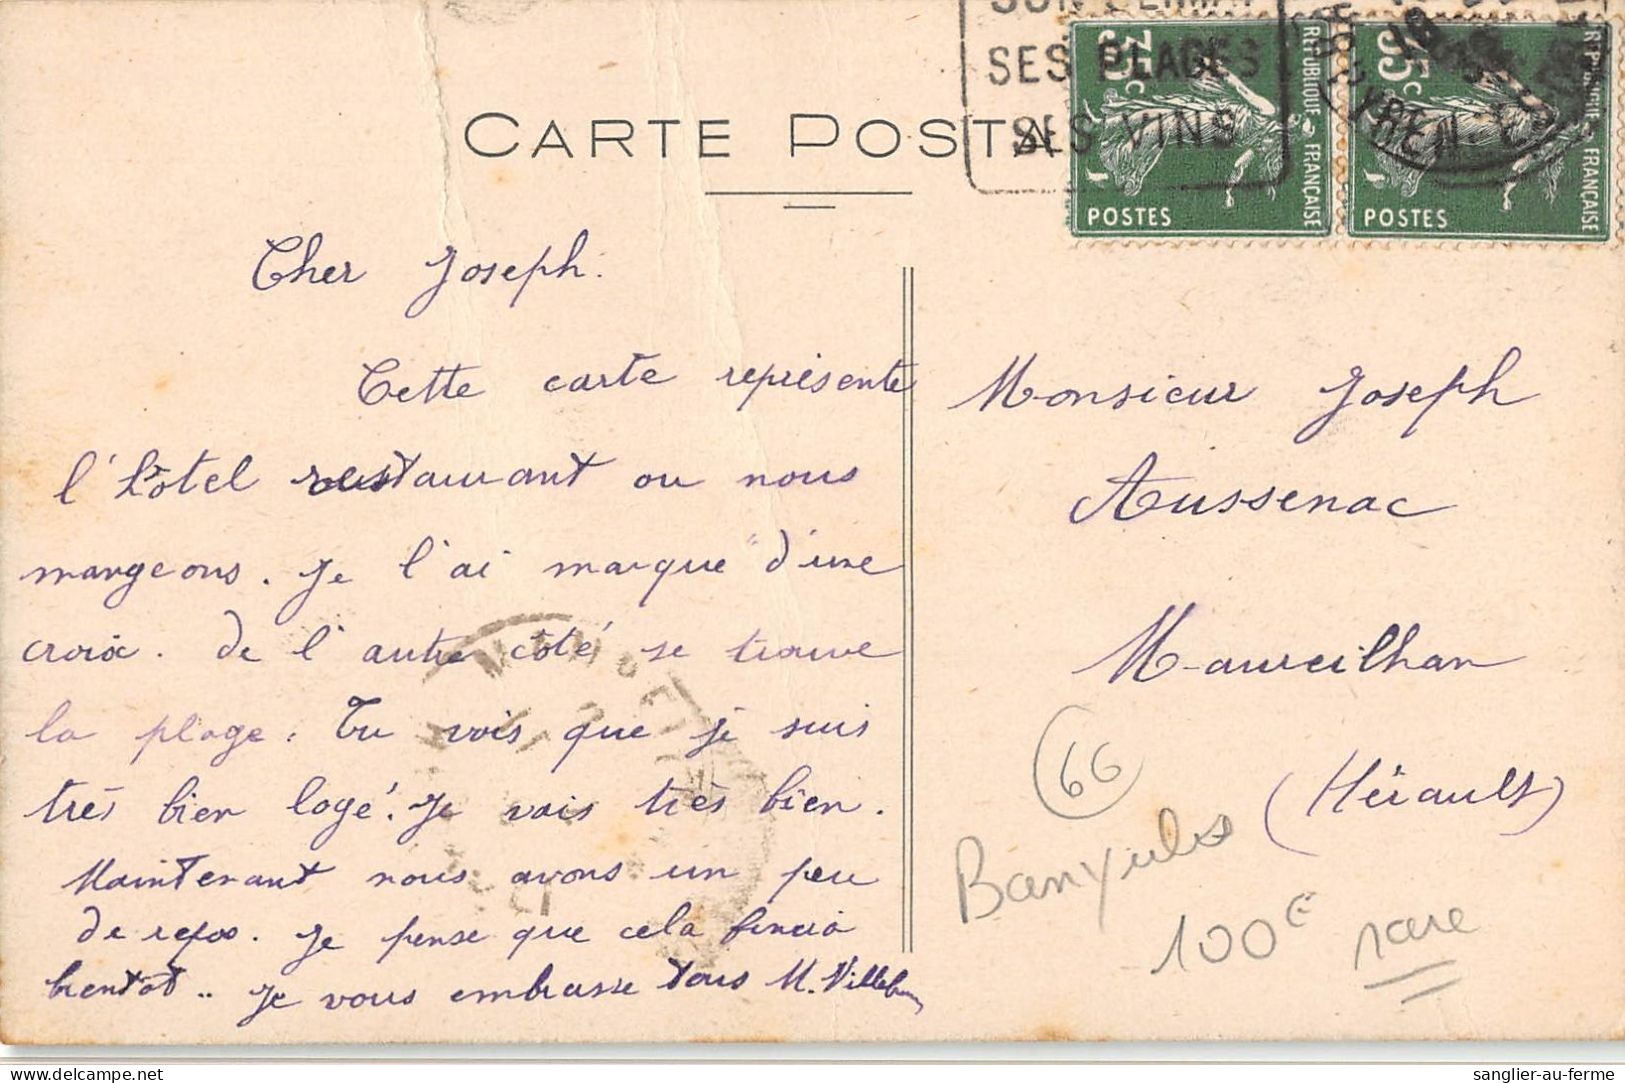 SES PLAGES
SES VINS
35c
REPUBLIQUE FRANÇAISE
POSTES
35c
REPUBLIQUE FRANÇAISE
POSTES
CARTE POSTA
Cher Joseph.
Cette carte représente
l'hôtel restaurant ou nous
mangeons. Je l'ai marque d'une
croix. De l'autre côté se trouve
la plage. Tu vois que je suis
très bien logé. Je vais très bien.
Maintenant nous avons un peu
de repos. Je pense que cela finira
bientôt.. Je vous embrasse tous M.
Monsieur Joseph
Aussenac
Maureilhan
(Hérault)
66
Banyuls
100€ rare
sanglier-au-ferme